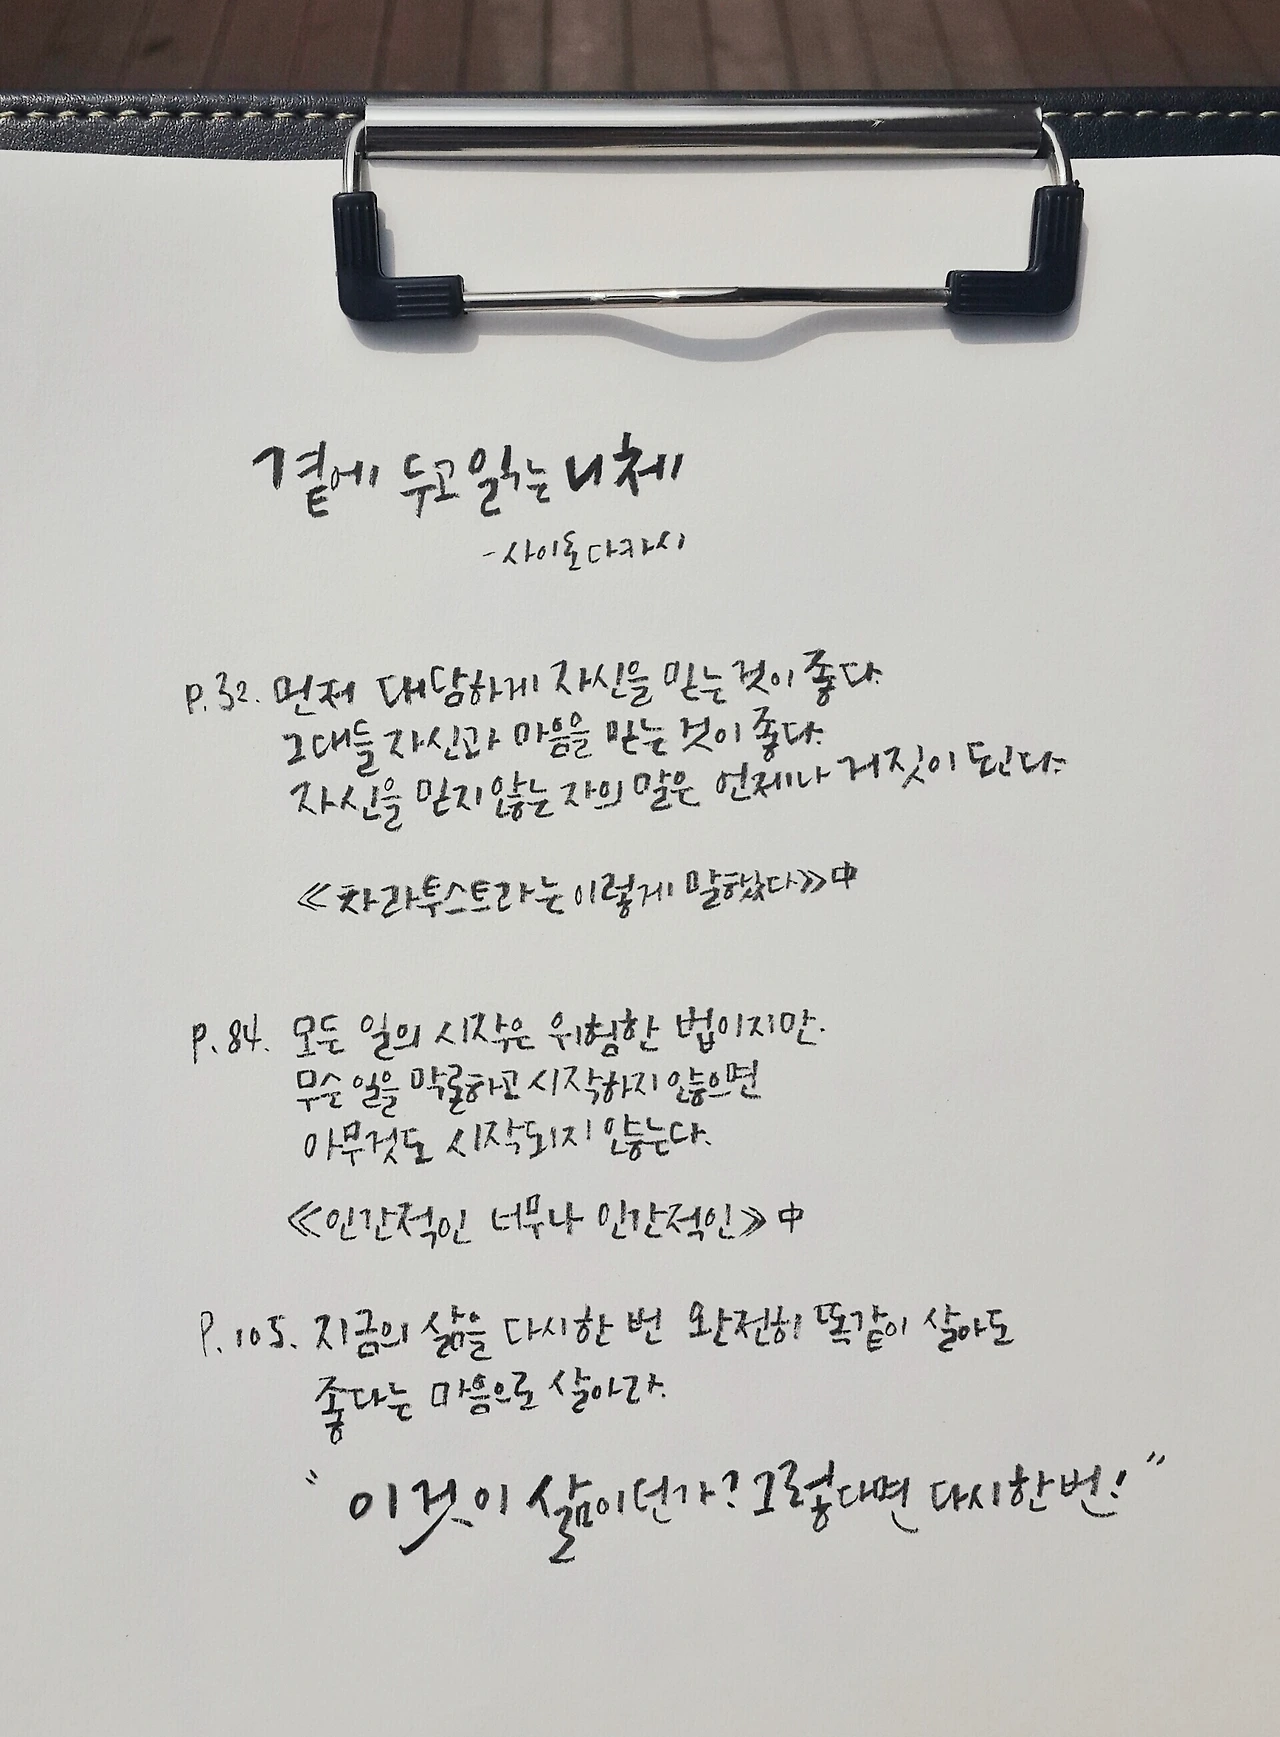 곁에 두고 읽는 니체
-사이토 다카시
P.32. 먼저 대담하게 자신을 믿는 것이 좋다.
그대들 자신과 마음을 믿는 것이 좋다.
자신을 믿지 않는 자의 말은 언제나 거짓이 된다.
≪차라투스트라는 이렇게 말했다≫ 中
P.84. 모든 일의 시작은 위험한 법이지만.
무슨 일을 막론하고 시작하지 않으면
아무것도 시작되지 않는다.
≪인간적인 너무나 인간적인≫ 中
P.105. 지금의 삶을 다시 한 번 완전히 똑같이 살아도
좋다는 마음으로 살아라.
"이것이 삶이던가? 그렇다면 다시 한번!"